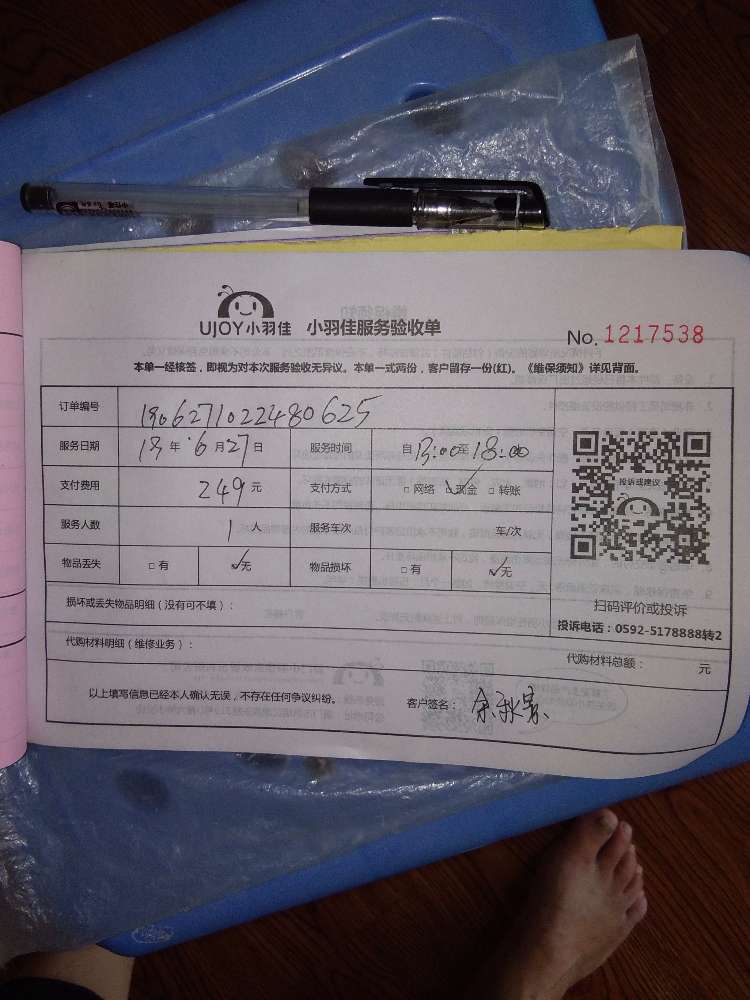 UJOY小羽佳 小羽佳服务验收单
No. 1217538
本单一经核签，即视为对本次服务验收无异议。本单一式两份，客户留存一份(红)。《维保须知》详见背面。
订单编号 1906271022480625
服务日期 19年6月27日 服务时间 自13:00至18:00
支付费用 249元 支付方式 □网络 ☑现金 □转账
服务人数 1人 服务车次 车/次
物品丢失 □有 ☑无 物品损坏 □有 ☑无
投诉或建议
UJOY小羽佳
扫码评价或投诉
投诉电话：0592-5178888转2
损坏或丢失物品明细（没有可不填）：
代购材料明细（维修业务）：
代购材料总额： 元
以上填写信息已经本人确认无误，不存在任何争议纠纷。 客户签名：